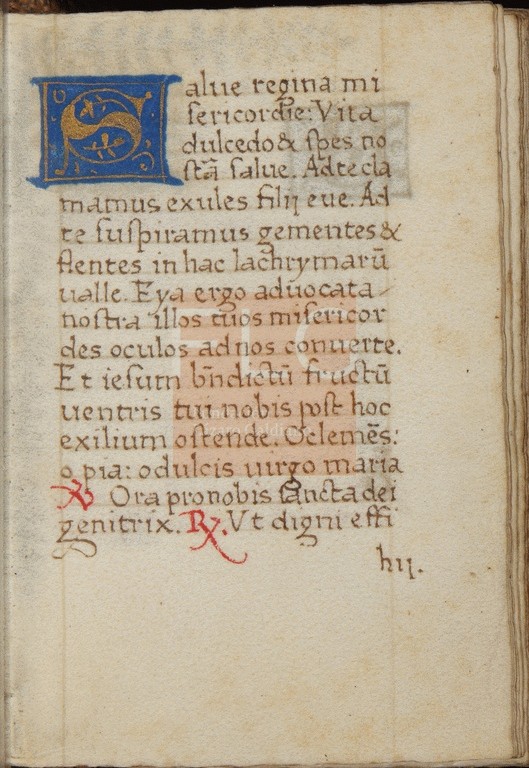 Salue regina mi
sericordie: Vita
dulcedo & spes no
stã salue. Ad te cla
mamus exules filij eue. Ad
te suspiramus gementes &
flentes in hac lachrymarũ
ualle. Eya ergo aduocata
nostra illos tuos misericor
des oculos ad nos conuerte.
Et iesum bñdictũ fructũ
uentris tui nobis post hoc
exilium ostende. O clemẽs:
o pia: o dulcis uirgo maria
℣ Ora pro nobis sancta dei
genitrix. ℟. Vt digni effi
hij.